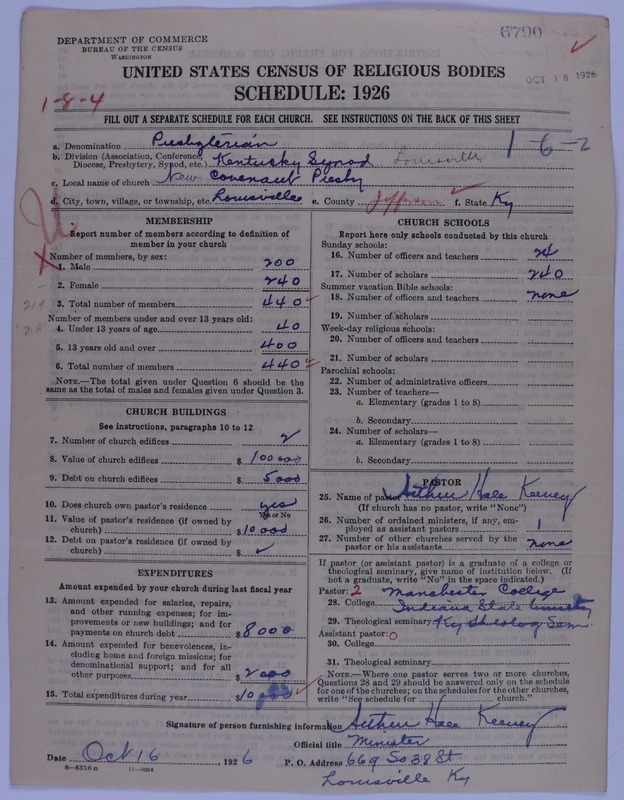 6790
DEPARTMENT OF COMMERCE
BUREAU OF THE CENSUS
WASHINGTON
UNITED STATES CENSUS OF RELIGIOUS BODIES
OCT 18 1926
SCHEDULE: 1926
1-8-4
FILL OUT A SEPARATE SCHEDULE FOR EACH CHURCH. SEE INSTRUCTIONS ON THE BACK OF THIS SHEET
a. Denomination Presbyterian
1-6-2
b. Division (Association, Conference, Diocese, Presbytery, Synod, etc.) Kentucky Synod Louisville
c. Local name of church New Covenant Presby
d. City, town, village, or township, etc. Louisville e. County Jefferson f. State Ky
MEMBERSHIP
Report number of members according to definition of
member in your church
Number of members, by sex:
1. Male 200
2. Female 240
3. Total number of members 440
Number of members under and over 13 years old:
4. Under 13 years of age 40
5. 13 years old and over 400
6. Total number of members 440
NOTE.—The total given under Question 6 should be the
same as the total of males and females given under Question 3.
CHURCH BUILDINGS
See instructions, paragraphs 10 to 12
7. Number of church edifices 2
8. Value of church edifices $ 100000
9. Debt on church edifices $ 5000
10. Does church own pastor's residence yes
Yes or No
11. Value of pastor's residence (if owned by
church) $ 10000
12. Debt on pastor's residence (if owned by
church) $
EXPENDITURES
Amount expended by your church during last fiscal year
13. Amount expended for salaries, repairs,
and other running expenses; for im-
provements or new buildings; and for
payments on church debt $ 8000
14. Amount expended for benevolences, in-
cluding home and foreign missions; for
denominational support; and for all
other purposes $ 2000
15. Total expenditures during year $ 10000
CHURCH SCHOOLS
Report here only schools conducted by this church
Sunday schools:
16. Number of officers and teachers 24
17. Number of scholars 240
Summer vacation Bible schools:
18. Number of officers and teachers none
19. Number of scholars
Week-day religious schools:
20. Number of officers and teachers
21. Number of scholars
Parochial schools:
22. Number of administrative officers
23. Number of teachers—
a. Elementary (grades 1 to 8)
b. Secondary
24. Number of scholars—
a. Elementary (grades 1 to 8)
b. Secondary
PASTOR
25. Name of pastor Arthur Hale Keeney
(If church has no pastor, write "None")
26. Number of ordained ministers, if any, em-
ployed as assistant pastors 1
27. Number of other churches served by the
pastor or his assistants none
If pastor (or assistant pastor) is a graduate of a college or
theological seminary, give name of institution below. (If
not a graduate, write "No" in the space indicated.)
Pastor: 2 Manchester College
28. College Indiana State University
29. Theological seminary Ky Theolog Sem.
Assistant pastor: 0
30. College
31. Theological seminary
NOTE.—Where one pastor serves two or more churches,
Questions 28 and 29 should be answered only on the schedule
for one of the churches; on the schedules for the other churches,
write "See schedule for church."
Signature of person furnishing information Arthur Hale Keeney
Official title Minister
Date Oct 16 1926 P. O. Address 669 So 38 St
8-5516a 11-9084
Louisville Ky